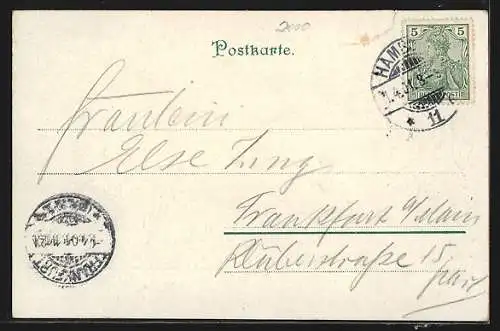 2000
Postkarte.
5 5
HAMB
* 11
Fräulein
Else Zing
Frankfurt a/Main
Klüberstraße 15
part
FRANKFURT